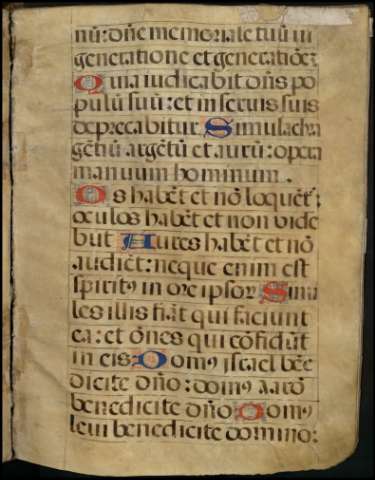 nū: dñe memoriale tuū in
generatione et generationeʒ
Quia iudicabit dñs po
pulū suū: et in seruis suis
deprecabitur Simulachra
gētiū argētū et aurū: opera
manuum hominum.
Os habēt et nō loquēt:
oculos habēt et non vide
būt Aures habēt et nō
audiēt: neque enim est
spiritꝰ in ore ipsoꝝ Simi
les illis fiāt qui faciunt
ea: et ōnes qui cōfidūt
in eis Domꝰ israel bēe
dicite dño: domꝰ aarō
benedicite dño: Domꝰ
leui benedicite domino: